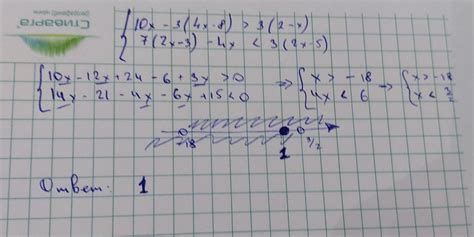 Стиварга
{ 10x - 3(4x-8) > 3(2-x)
7(2x-3) - 4x < 3(2x-5)
{ 10x - 12x + 24 - 6 + 3x > 0
14x - 21 - 4x - 6x + 15 < 0
⇒ { x > -18
4x < 6
→ { x > -18
x < 3/2
-18 1 3/2
Ответ: 1